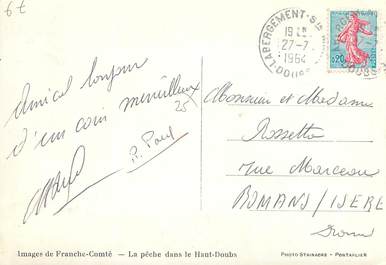 6 €
LABERGEMENT-STE
19 H
27-7
1964
DOUBS
0,20
Amical bonjour
d'un coin merveilleux
25
P. Paul
Monsieur et Madame
Rossetto
rue Marceau
ROMANS/ISERE
Drome
Images de Franche-Comté – La pêche dans le Haut-Doubs
PHOTO STAINACRE - PONTARLIER